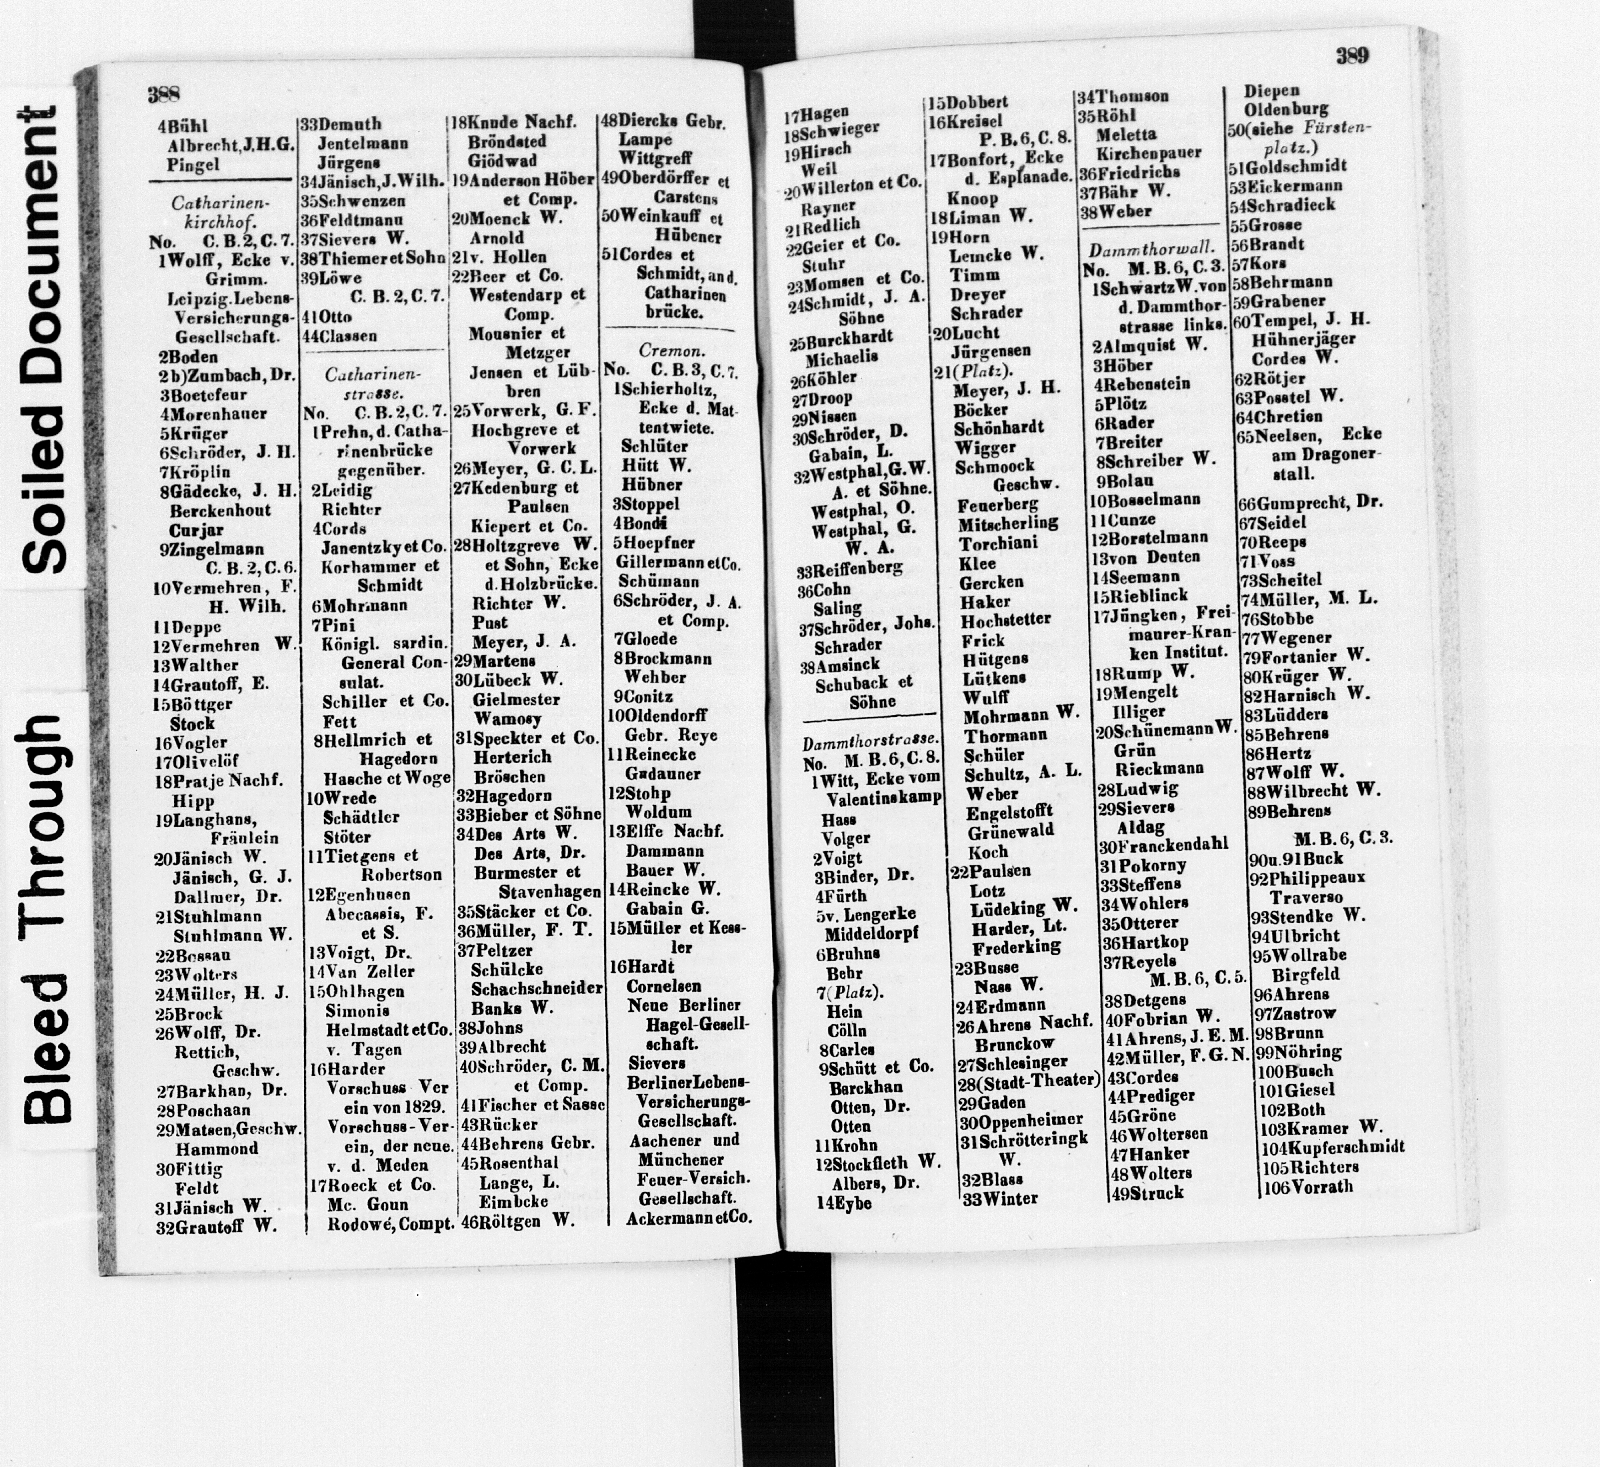 Soiled Document
Bleed Through
388
4Bühl
Albrecht,J.H.G.
Pingel
Catharinen-
kirchhof.
No. C.B.2,C.7.
1Wolff, Ecke v.
Grimm.
Leipzig.Lebens-
Versicherungs-
Gesellschaft.
2Boden
2b)Zumbach, Dr.
3Boetefeur
4Morenhauer
5Krüger
6Schröder, J. H.
7Kröplin
8Gädecke, J. H.
Berckenhout
Curjar
9Zingelmann
C.B.2,C.6.
10Vermehren, F.
H. Wilh.
11Deppe
12Vermehren W.
13Walther
14Grautoff, E.
15Böttger
Stock
16Vogler
17Olivelöf
18Pratje Nachf.
Hipp
19Langhans,
Fräulein
20Jänisch W.
Jänisch, G. J.
Dallmer, Dr.
21Stuhlmann
Stuhlmann W.
22Bossau
23Wolters
24Müller, H. J.
25Brock
26Wolff, Dr.
Rettich,
Geschw.
27Barkhan, Dr.
28Poschaan
29Matsen,Geschw.
Hammond
30Fittig
Feldt
31Jänisch W.
32Grautoff W.
33Demuth
Jentelmann
Jürgens
34Jänisch,J.Wilh.
35Schwenzen
36Feldtmann
37Sievers W.
38Thiemer et Sohn
39Löwe
C.B.2,C.7.
41Otto
44Classen
Catharinen-
strasse.
No. C.B.2,C.7.
1Prehn,d.Catha-
rinenbrücke
gegenüber.
2Leidig
Richter
4Cords
Janentzky et Co.
Korhammer et
Schmidt
6Mohrmann
7Pini
Königl. sardin.
General Con-
sulat.
Schiller et Co.
Fett
8Hellmrich et
Hagedorn
Hasche et Woge
10Wrede
Schädtler
Stöter
11Tietgens et
Robertson
12Egenhusen
Abecassis, F.
et S.
13Voigt, Dr.
14Van Zeller
15Ohlhagen
Simonis
Helmstadt et Co.
v. Tagen
16Harder
Vorschuss Ver
ein von 1829.
Vorschuss-Ver-
ein, der neue.
v. d. Meden
17Roeck et Co.
Mc. Goun
Rodowé, Compt.
18Knude Nachf.
Bröndsted
Giödwad
19Anderson Höber
et Comp.
20Moenck W.
Arnold
21v. Hollen
22Beer et Co.
Westendarp et
Comp.
Mousnier et
Metzger
Jensen et Lüb-
bren
25Vorwerk, G. F.
Hochgreve et
Vorwerk
26Meyer, G. C. L.
27Kedenburg et
Paulsen
Kiepert et Co.
28Holtzgreve W.
et Sohn, Ecke
d.Holzbrücke.
Richter W.
Pust
Meyer, J. A.
29Martens
30Lübeck W.
Gielmester
Wamosy
31Speckter et Co.
Herterich
Bröschen
32Hagedorn
33Bieber et Söhne
34Des Arts W.
Des Arts, Dr.
Burmester et
Stavenhagen
35Stäcker et Co.
36Müller, F. T.
37Peltzer
Schülcke
Schachschneider
Banks W.
38Johns
39Albrecht
40Schröder, C. M.
et Comp.
41Fischer et Sasse
43Rücker
44Behrens Gebr.
45Rosenthal
Lange, L.
Eimbcke
46Röltgen W.
48Diercks Gebr.
Lampe
Wittgreff
49Oberdörffer et
Carstens
50Weinkauff et
Hübener
51Cordes et
Schmidt, and.
Catharinen
brücke.
Cremon.
No. C.B.3,C.7.
1Schierholtz,
Ecke d. Mat-
tentwiete.
Schlüter
Hütt W.
Hübner
3Stoppel
4Bondi
5Hoepfner
Gillermann et Co.
Schümann
6Schröder, J. A.
et Comp.
7Gloede
8Brockmann
Wehber
9Conitz
10Oldendorff
Gebr. Reye
11Reinecke
Gadauner
12Stohp
Woldum
13Elffe Nachf.
Dammann
Bauer W.
14Reincke W.
Gabain G.
15Müller et Kess-
ler
16Hardt
Cornelsen
Neue Berliner
Hagel-Gesell-
schaft.
Sievers
BerlinerLebens-
Versicherungs-
Gesellschaft.
Aachener und
Münchener
Feuer-Versich.
Gesellschaft.
Ackermann et Co.
389
17Hagen
18Schwieger
19Hirsch
Weil
20Willerton et Co.
Rayner
21Redlich
22Geier et Co.
Stuhr
23Momsen et Co.
24Schmidt, J. A.
Söhne
25Burckhardt
Michaelis
26Köhler
27Droop
29Nissen
30Schröder, D.
Gabain, L.
32Westphal,G.W.
A. et Söhne.
Westphal, O.
Westphal, G.
W. A.
33Reiffenberg
36Cohn
Saling
37Schröder, Johs.
Schrader
38Amsinck
Schuback et
Söhne
Dammthorstrasse.
No. M.B.6,C.8.
1Witt, Ecke vom
Valentinskamp
Hass
Volger
2Voigt
3Binder, Dr.
4Fürth
5v. Lengerke
Middeldorpf
6Bruhns
Behr
7(Platz).
Hein
Cölln
8Carles
9Schütt et Co.
Barckhan
Otten, Dr.
Otten
11Krohn
12Stockfleth W.
Albers, Dr.
14Eybe
15Dobbert
16Kreisel
P.B.6,C.8.
17Bonfort, Ecke
d. Esplanade.
Knoop
18Liman W.
19Horn
Lemcke W.
Timm
Dreyer
Schrader
20Lucht
Jürgensen
21(Platz).
Meyer, J. H.
Böcker
Schönhardt
Wigger
Schmoock
Geschw.
Feuerberg
Mitscherling
Torchiani
Klee
Gercken
Haker
Hochstetter
Frick
Hütgens
Lütkens
Wulff
Mohrmann W.
Thormann
Schüler
Schultz, A. L.
Weber
Engelstofft
Grünewald
Koch
22Paulsen
Lotz
Lüdeking W.
Harder, Lt.
Frederking
23Busse
Nass W.
24Erdmann
26Ahrens Nachf.
Brunckow
27Schlesinger
28(Stadt-Theater)
29Gaden
30Oppenheimer
31Schrötteringk
W.
32Blass
33Winter
34Thomson
35Röhl
Meletta
Kirchenpauer
36Friedrichs
37Bähr W.
38Weber
Dammthorwall.
No. M.B.6,C.3.
1SchwartzW.von
d. Dammthor-
strasse links.
2Almquist W.
3Höber
4Rebenstein
5Plötz
6Rader
7Breiter
8Schreiber W.
9Bolau
10Bosselmann
11Cunze
12Borstelmann
13von Deuten
14Seemann
15Rieblinck
17Jüngken, Frei-
maurer-Kran-
ken Institut.
18Rump W.
19Mengelt
Illiger
20Schünemann W.
Grün
Rieckmann
28Ludwig
29Sievers
Aldag
30Franckendahl
31Pokorny
33Steffens
34Wohlers
35Otterer
36Hartkop
37Reyels
M.B.6,C.5.
38Detgens
40Fobrian W.
41Ahrens, J. E. M.
42Müller, F. G. N.
43Cordes
44Prediger
45Gröne
46Woltersen
47Hanker
48Wolters
49Struck
Diepen
Oldenburg
50(siehe Fürsten-
platz.)
51Goldschmidt
53Eickermann
54Schradieck
55Grosse
56Brandt
57Kors
58Behrmann
59Grabener
60Tempel, J. H.
Hühnerjäger
Cordes W.
62Rötjer
63Posstel W.
64Chretien
65Neelsen, Ecke
am Dragoner-
stall.
66Gumprecht, Dr.
67Seidel
70Reeps
71Voss
73Scheitel
74Müller, M. L.
76Stobbe
77Wegener
79Fortanier W.
80Krüger W.
82Harnisch W.
83Lüdders
85Behrens
86Hertz
87Wolff W.
88Wilbrecht W.
89Behrens
M.B.6,C.3.
90u.91Buck
92Philippeaux
Traverso
93Stendke W.
94Ulbricht
95Wollrabe
Birgfeld
96Ahrens
97Zastrow
98Brunn
99Nöhring
100Busch
101Giesel
102Both
103Kramer W.
104Kupferschmidt
105Richters
106Vorrath